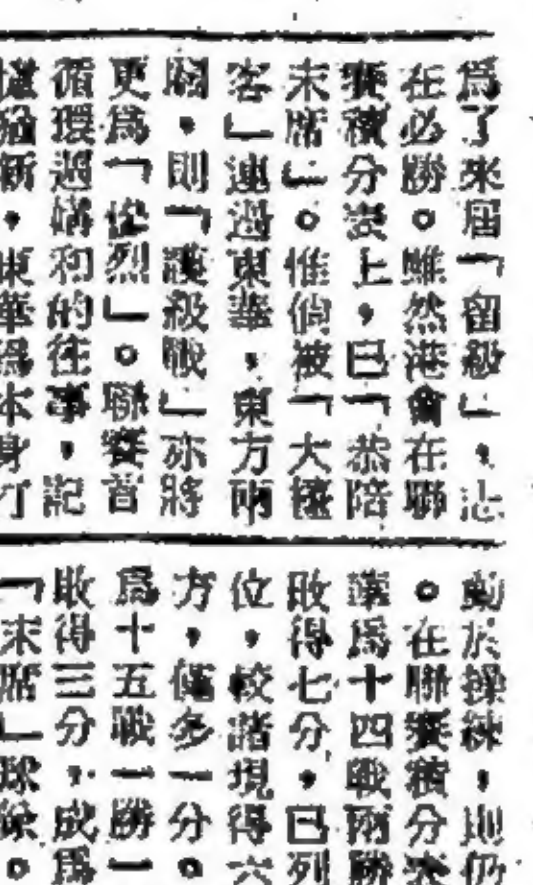 爲了來屆「留級」，志
在必勝。雖然港會在聯
賽積分表上，已「恭陪
末席」。惟倘被「大樓
客」連過東華，東方兩
關，則「護級戰」亦將
更爲「慘烈」。聯賽首
循環過構和的往事，記
憶猶新，東華爲本身打
勤於操練，則仍
。在聯賽積分表
讓爲十四戰兩勝
敗得七分，已列
位，較諸現得六
方，僅多一分。
爲十五戰一勝一
敗得三分，成爲
「末席」球隊。